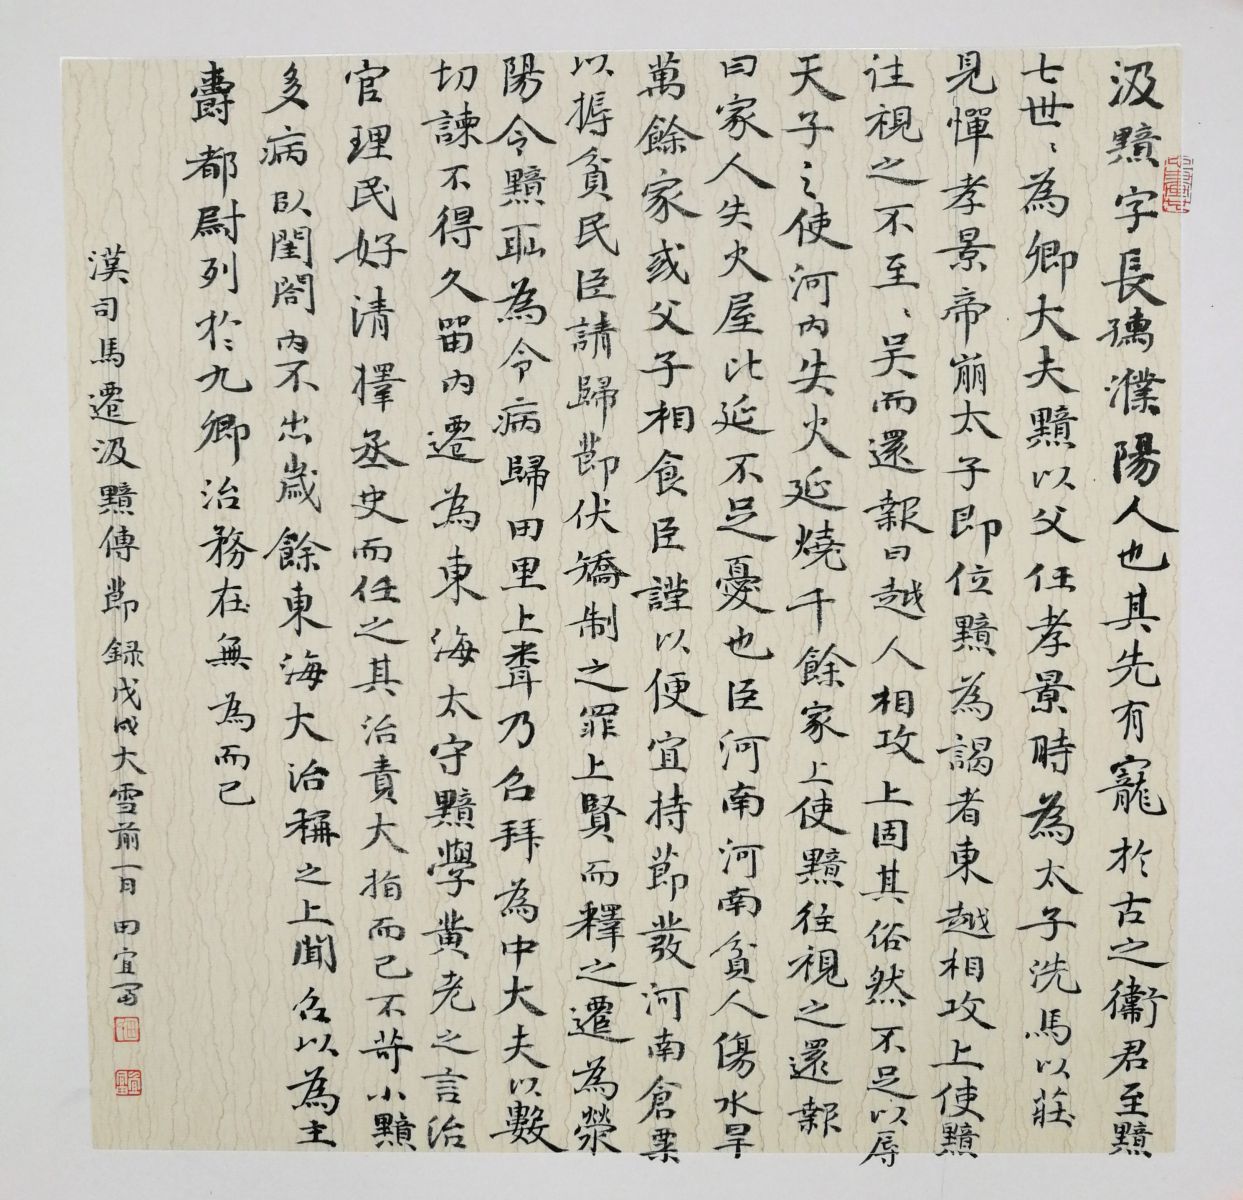 汲黯字長孺濮陽人也其先有寵於古之衛君至黯
七世〻為卿大夫黯以父任孝景時為太子洗馬以莊
見憚孝景帝崩太子即位黯為謁者東越相攻上使黯
往視之不至〻吴而還報曰越人相攻上固其俗然不足以辱
天子之使河内失火延燒千餘家上使黯往視之還報
曰家人失火屋比延不足憂也臣河南河南貧人傷水旱
萬餘家或父子相食臣謹以便宜持節發河南倉粟
以振貧民臣請歸節伏矯制之罪上賢而釋之遷為滎
陽令黯恥為令病歸田里上聋乃召拜為中大夫以數
切諫不得久留内遷為東海太守黯學黄老之言治
官理民好清擇丞史而任之其治責大指而已不苛小黯
多病臥閨閤内不出歲餘東海大治稱之上聞召以為主
爵都尉列於九卿治務在無為而已
漢司馬遷汲黯傳節録戊戌大雪前一日田宜